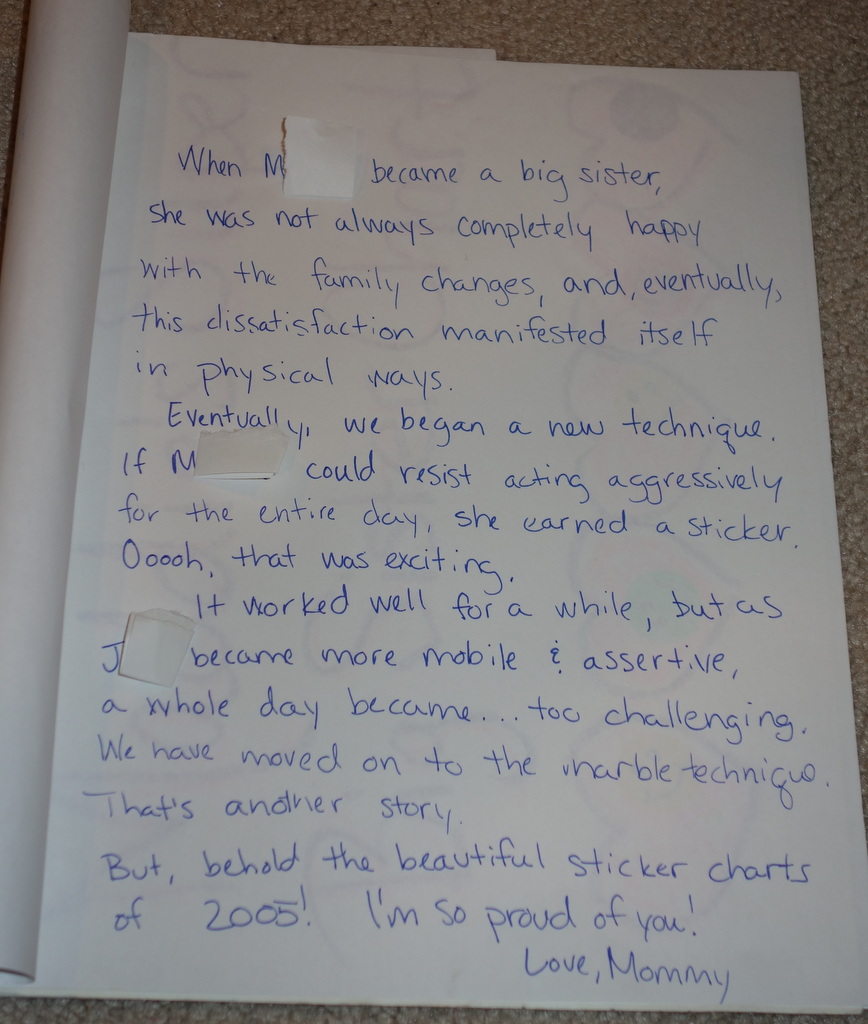 When M became a big sister,
she was not always completely happy
with the family changes, and, eventually,
this dissatisfaction manifested itself
in physical ways.
Eventually, we began a new technique.
If M could resist acting aggressively
for the entire day, she earned a sticker.
Ooooh, that was exciting.
It worked well for a while, but as
J became more mobile & assertive,
a whole day became... too challenging.
We have moved on to the marble technique.
That's another story.
But, behold the beautiful sticker charts
of 2005! I'm so proud of you!
Love, Mommy